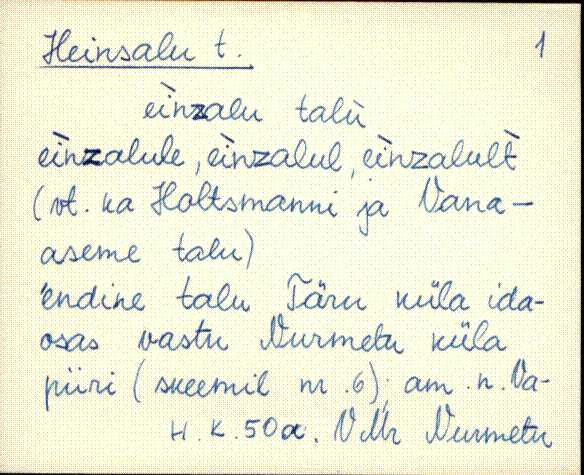 Heinsalu t. 1
èinzalu talù
èinzalule, èinzalul, èinzalult̀
(vt. ka Holtsmanni ja Vana-
aseme talu)
endine talu Täru küla ida-
osas vastu Nurmetu küla
piiri (skeemil nr. 6); am. n. Va-
H. K. 50a. VMr Nurmetu